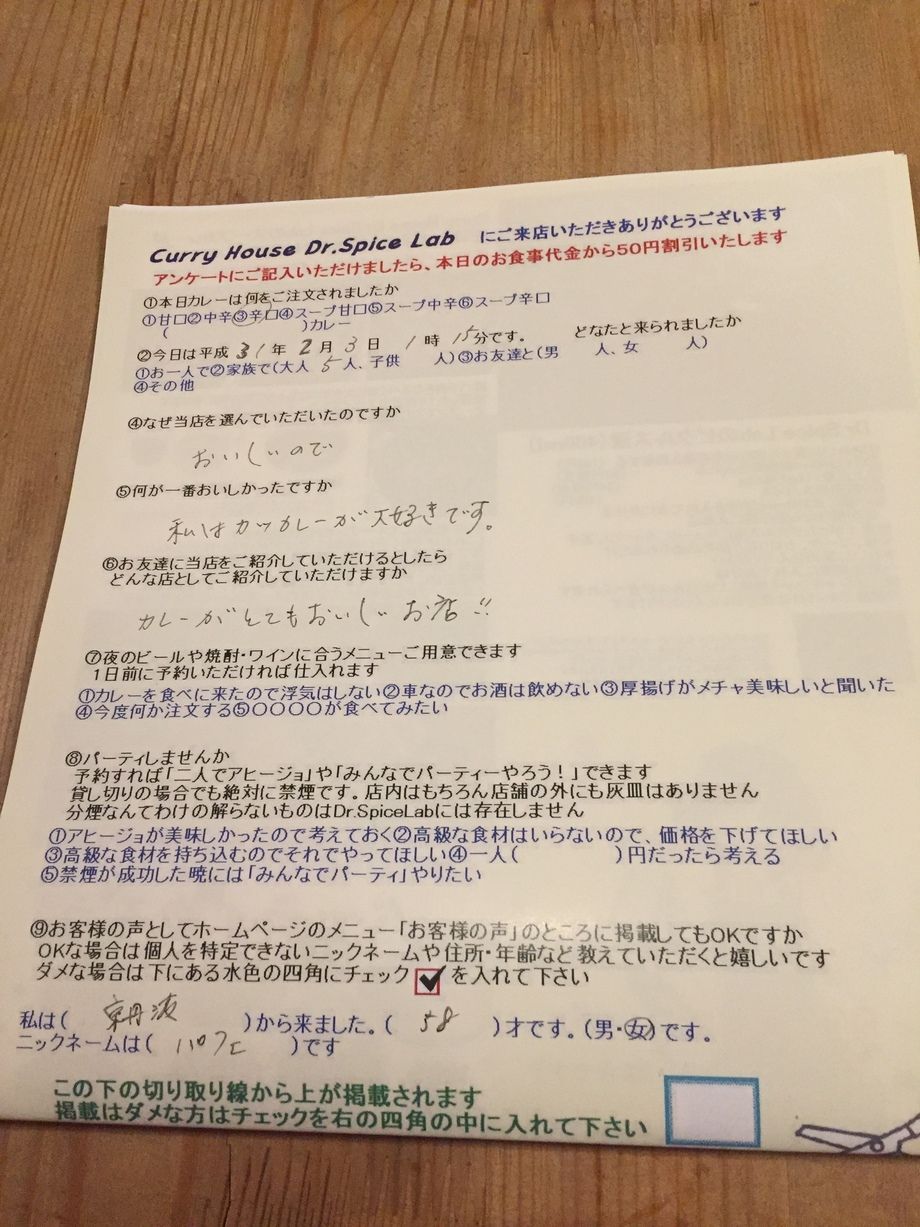 Curry House Dr.Spice Lab にご来店いただきありがとうございます
アンケートにご記入いただけましたら、本日のお食事代金から50円割引いたします
①本日カレーは何をご注文されましたか
①甘口②中辛③辛口④スープ甘口⑤スープ中辛⑥スープ辛口
( )カレー
②今日は平成31年2月3日 1時15分です。 どなたと来られましたか
①お一人で②家族で(大人 5人、子供 人)③お友達と(男 人、女 人)
④その他
④なぜ当店を選んでいただいたのですか
おいしいので
⑤何が一番おいしかったですか
私はカツカレーが大好きです。
⑥お友達に当店をご紹介していただけるとしたら
どんな店としてご紹介していただけますか
カレーがとてもおいしいお店!!
⑦夜のビールや焼酎・ワインに合うメニューご用意できます
1日前に予約いただければ仕入れます
①カレーを食べに来たので浮気はしない②車なのでお酒は飲めない③厚揚げがメチャ美味しいと聞いた
④今度何か注文する⑤〇〇〇〇が食べてみたい
⑧パーティしませんか
予約すれば「二人でアヒージョ」や「みんなでパーティーやろう!」できます
貸し切りの場合でも絶対に禁煙です。店内はもちろん店舗の外にも灰皿はありません
分煙なんてわけの解らないものはDr.SpiceLabには存在しません
①アヒージョが美味しかったので考えておく②高級な食材はいらないので、価格を下げてほしい
③高級な食材を持ち込むのでそれでやってほしい④一人( )円だったら考える
⑤禁煙が成功した暁には「みんなでパーティ」やりたい
⑨お客様の声としてホームページのメニュー「お客様の声」のところに掲載してもOKですか
OKな場合は個人を特定できないニックネームや住所・年齢など教えていただくと嬉しいです
ダメな場合は下にある水色の四角にチェック を入れて下さい
私は( 京丹波 )から来ました。( 58 )才です。(男・女)です。
ニックネームは( パフェ )です
この下の切り取り線から上が掲載されます
掲載はダメな方はチェックを右の四角の中に入れて下さい